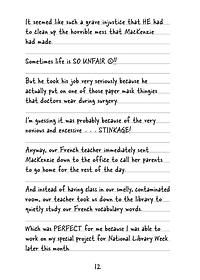 It seemed like such a grave injustice that HE had
to clean up the horrible mess that MacKenzie
had made.
Sometimes life is SO UNFAIR ☹!!
But he took his job very seriously because he
actually put on one of those paper mask thingies
that doctors wear during surgery.
I'm guessing it was probably because of the very
noxious and excessive . . . STINKAGE!
Anyway, our French teacher immediately sent
MacKenzie down to the office to call her parents
to go home for the rest of the day.
And instead of having class in our smelly, contaminated
room, our teacher took us down to the library to
quietly study our French vocabulary words.
Which was PERFECT for me because I was able to
work on my special project for National Library Week
later this month.
12